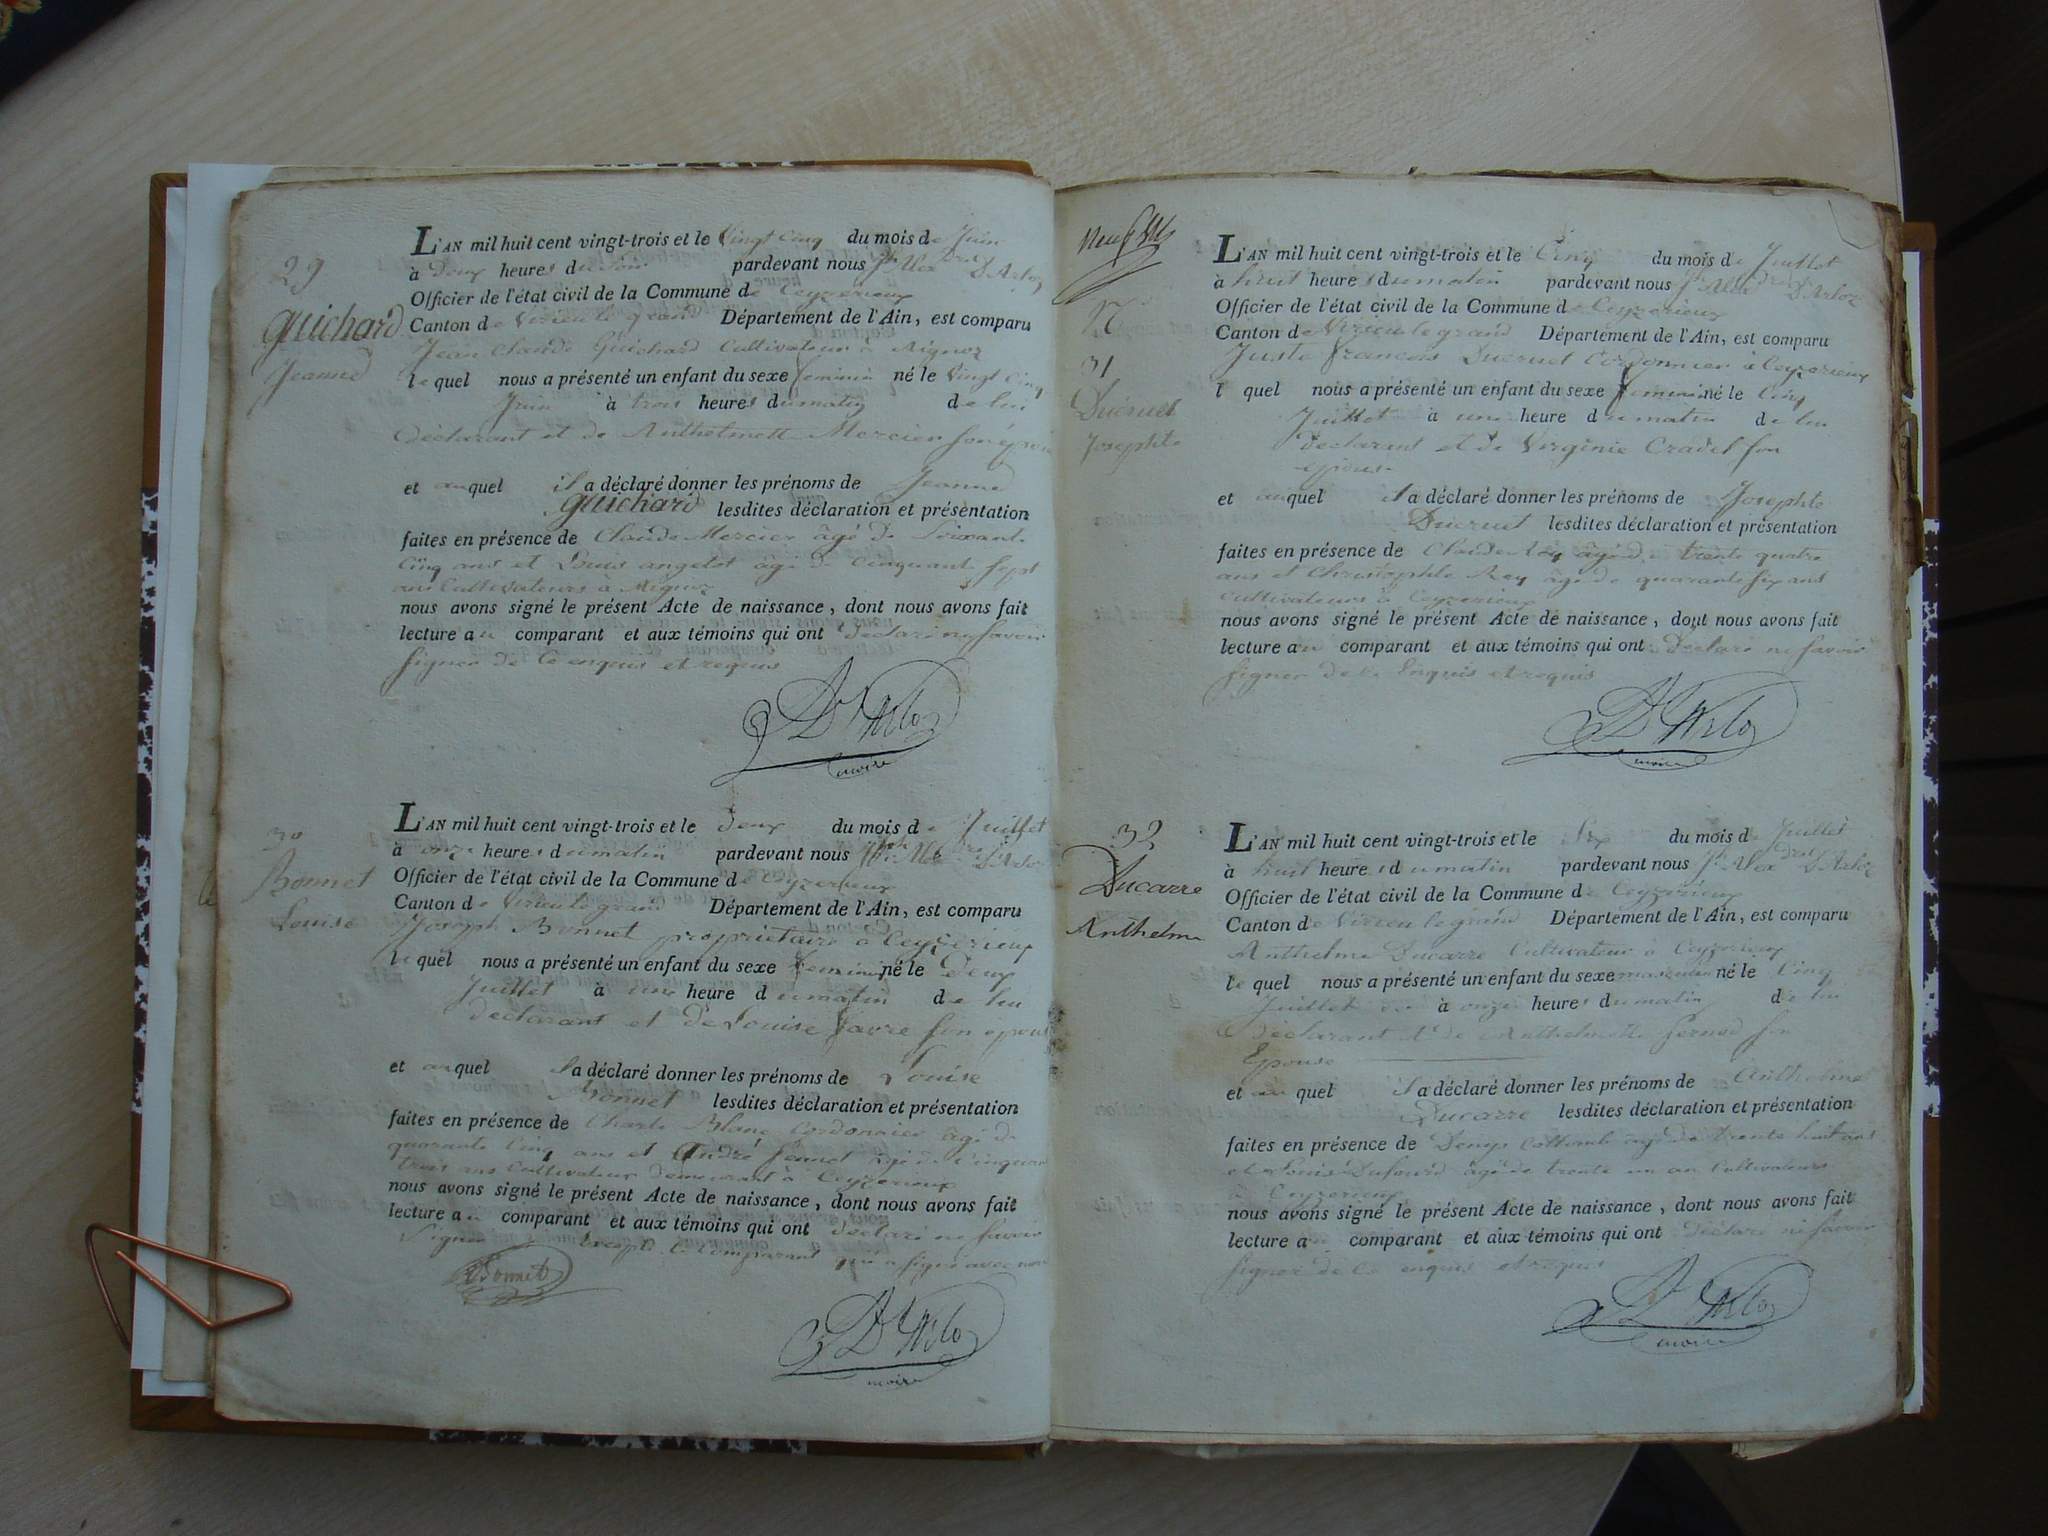 29
Guichard
Jeanne
L'AN mil huit cent vingt-trois et le Vingt Cinq du mois de Juin
à Deux heures du Soir pardevant nous Jh Alexdre D'Arloz
Officier de l'état civil de la Commune de Ceyzerieux
Canton de Virieu le grand Département de l'Ain, est comparu
Jean Claude Guichard Cultivateur à Aignoz
lequel nous a présenté un enfant du sexe feminin né le Vingt Cinq
Juin à trois heures du matin de lui
Déclarant et de Anthelmette Mercier son épouse
et auquel il a déclaré donner les prénoms de Jeanne
Guichard lesdites déclaration et présentation
faites en présence de Claude Mercier âgé de Soixante
Cinq ans et Louis angelot âgé de Cinquante sept
ans Cultivateurs à Aignoz
nous avons signé le présent Acte de naissance, dont nous avons fait
lecture au comparant et aux témoins qui ont Déclaré ne savoir
signer de Ce enquis et requis
D'Arloz
maire
30
Bonnet
Louise
L'AN mil huit cent vingt-trois et le Deux du mois de Juillet
à onze heures du matin pardevant nous D'Arloz
Officier de l'état civil de la Commune de Ceyzerieux
Canton de Virieu le grand Département de l'Ain, est comparu
Joseph Bonnet propriétaire à Ceyzerieux
lequel nous a présenté un enfant du sexe feminin né le Deux
Juillet à une heure du matin de lui
declarant et de Louise favre son epouse
et auquel il a déclaré donner les prénoms de Louise
Bonnet lesdites déclaration et présentation
faites en présence de Charle Blanc Cordonnier âgé de
quarante Cinq ans et André Jennet âgé de Cinquante
trois ans Cultivateur demeurant à Ceyzerieux
nous avons signé le présent Acte de naissance, dont nous avons fait
lecture au comparant et aux témoins qui ont declaré ne savoir
Signer Excepté le Comparant qui a signé avec nous
Bonnet
D'Arloz
maire
Neuf
N
31
Ducruet
Josephte
L'AN mil huit cent vingt-trois et le Cinq du mois de Juillet
à huit heures du matin pardevant nous Jh Alexdre D'Arloz
Officier de l'état civil de la Commune de Ceyzerieux
Canton de Virieu le grand Département de l'Ain, est comparu
Juste françois Ducruet Cordonnier à Ceyzerieux
l quel nous a présenté un enfant du sexe feminin né le Cinq
Juillet à une heure du matin de lui
Declarant et de Virginie Cradel son
epouse
et auquel il a déclaré donner les prénoms de Josephte
Ducruet lesdites déclaration et présentation
faites en présence de Claude Rey âgé de trente quatre
ans et Christophle Rey âgé de quarante six ans
Cultivateurs à Ceyzerieux
nous avons signé le présent Acte de naissance, dont nous avons fait
lecture au comparant et aux témoins qui ont Déclaré ne savoir
signer de Ce Enquis et requis
D'Arloz
maire
32
Ducarre
Anthelme
L'AN mil huit cent vingt-trois et le Six du mois de Juillet
à huit heures du matin pardevant nous Jh Alexdre D'Arloz
Officier de l'état civil de la Commune de Ceyzerieux
Canton de Virieu le grand Département de l'Ain, est comparu
Anthelme Ducarre Cultivateur à Ceyzerieux
lequel nous a présenté un enfant du sexe masculin né le Cinq
Juillet à onze heures du matin de lui
Déclarant et de Anthelmette son
Epouse
et auquel il a déclaré donner les prénoms de Anthelme
Ducarre lesdites déclaration et présentation
faites en présence de Denys Collomb âgé de trente huit ans
et Louis Dufourd âgé de trente un an Cultivateurs
à Ceyzerieux
nous avons signé le présent Acte de naissance, dont nous avons fait
lecture au comparant et aux témoins qui ont Déclaré ne savoir
signer de Ce enquis et requis
D'Arloz
maire